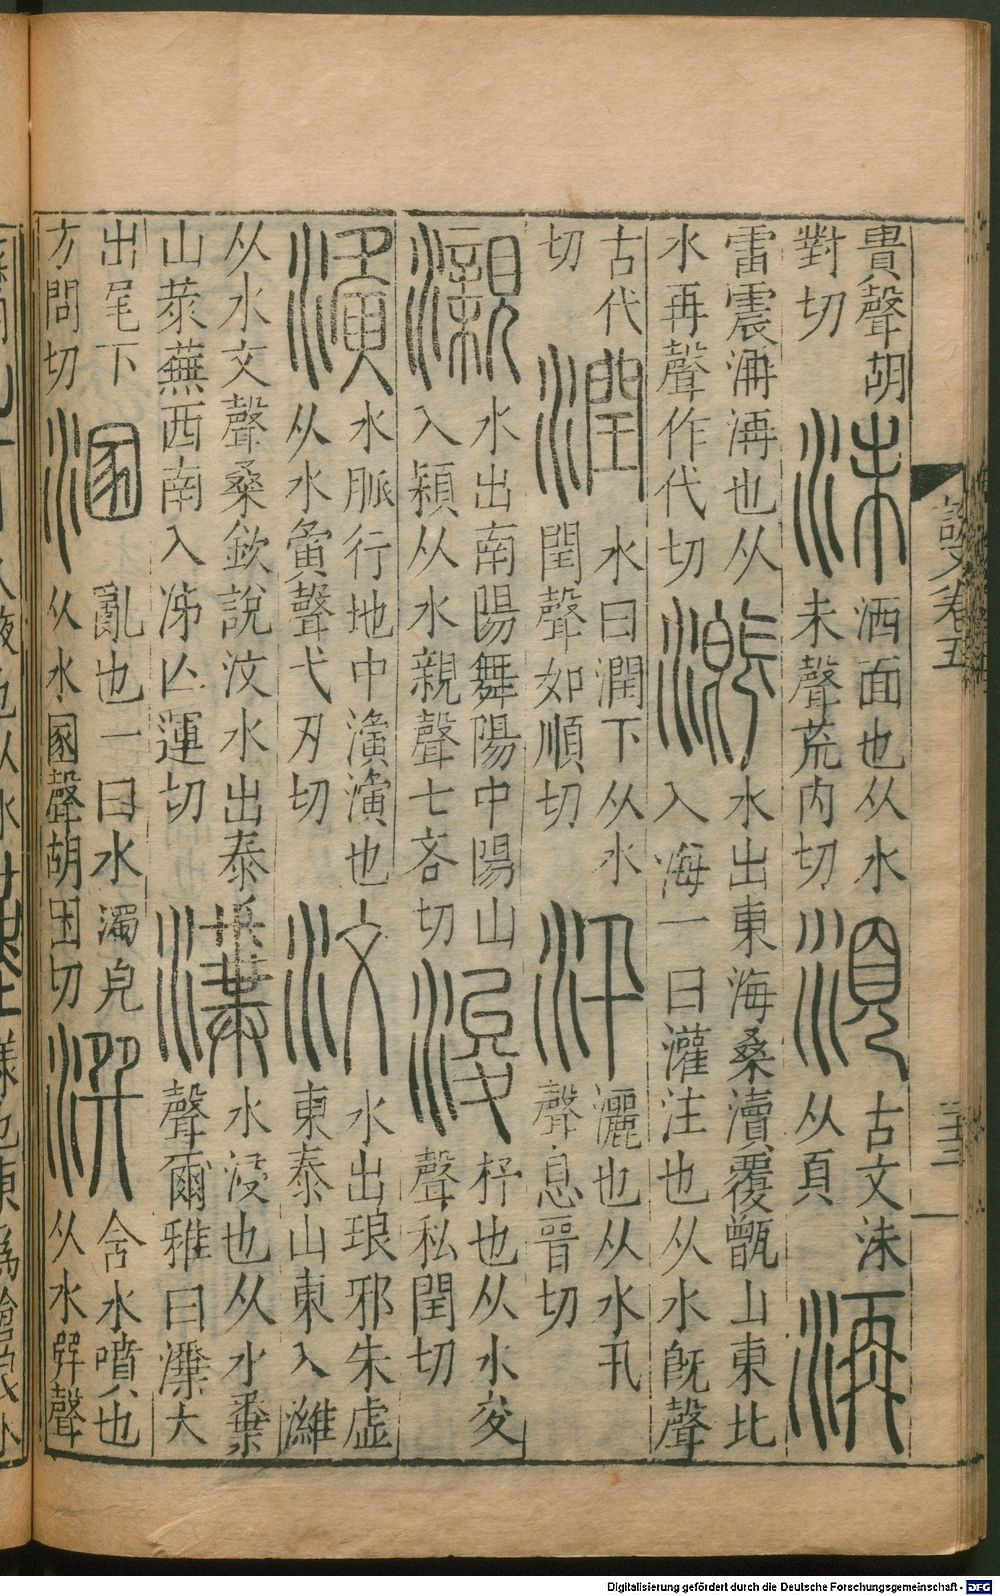 貴聲胡
對切
沬
洒面也从水
未聲荒内切
湏
古文沬
从頁
洅
雷震洅洅也从
水再聲作代切
漑
水出東海桑瀆覆甑山東北
入海一曰灌注也从水旣聲
古代
切
潤
水曰潤下从水
閏聲如順切
汛
灑也从水卂
聲息晉切
瀙
水出南陽舞陽中陽山
入潁从水親聲七吝切
浚
杼也从水夋
聲私閏切
濥
水脈行地中濥濥也
从水夤聲弋刃切
汶
水出琅邪朱虛
東泰山東入濰
从水文聲桑欽說汶水出泰
山萊蕪西南入泲亾運切
瀵
水浸也从水糞
聲爾雅曰瀵大
出尾下
圂
亂也一曰水濁皃
从水圂聲胡困切
方問切
含水噴也
从水聲
說文卷五
二十三
Digitalisierung gefördert durch die Deutsche Forschungsgemeinschaft - DFG